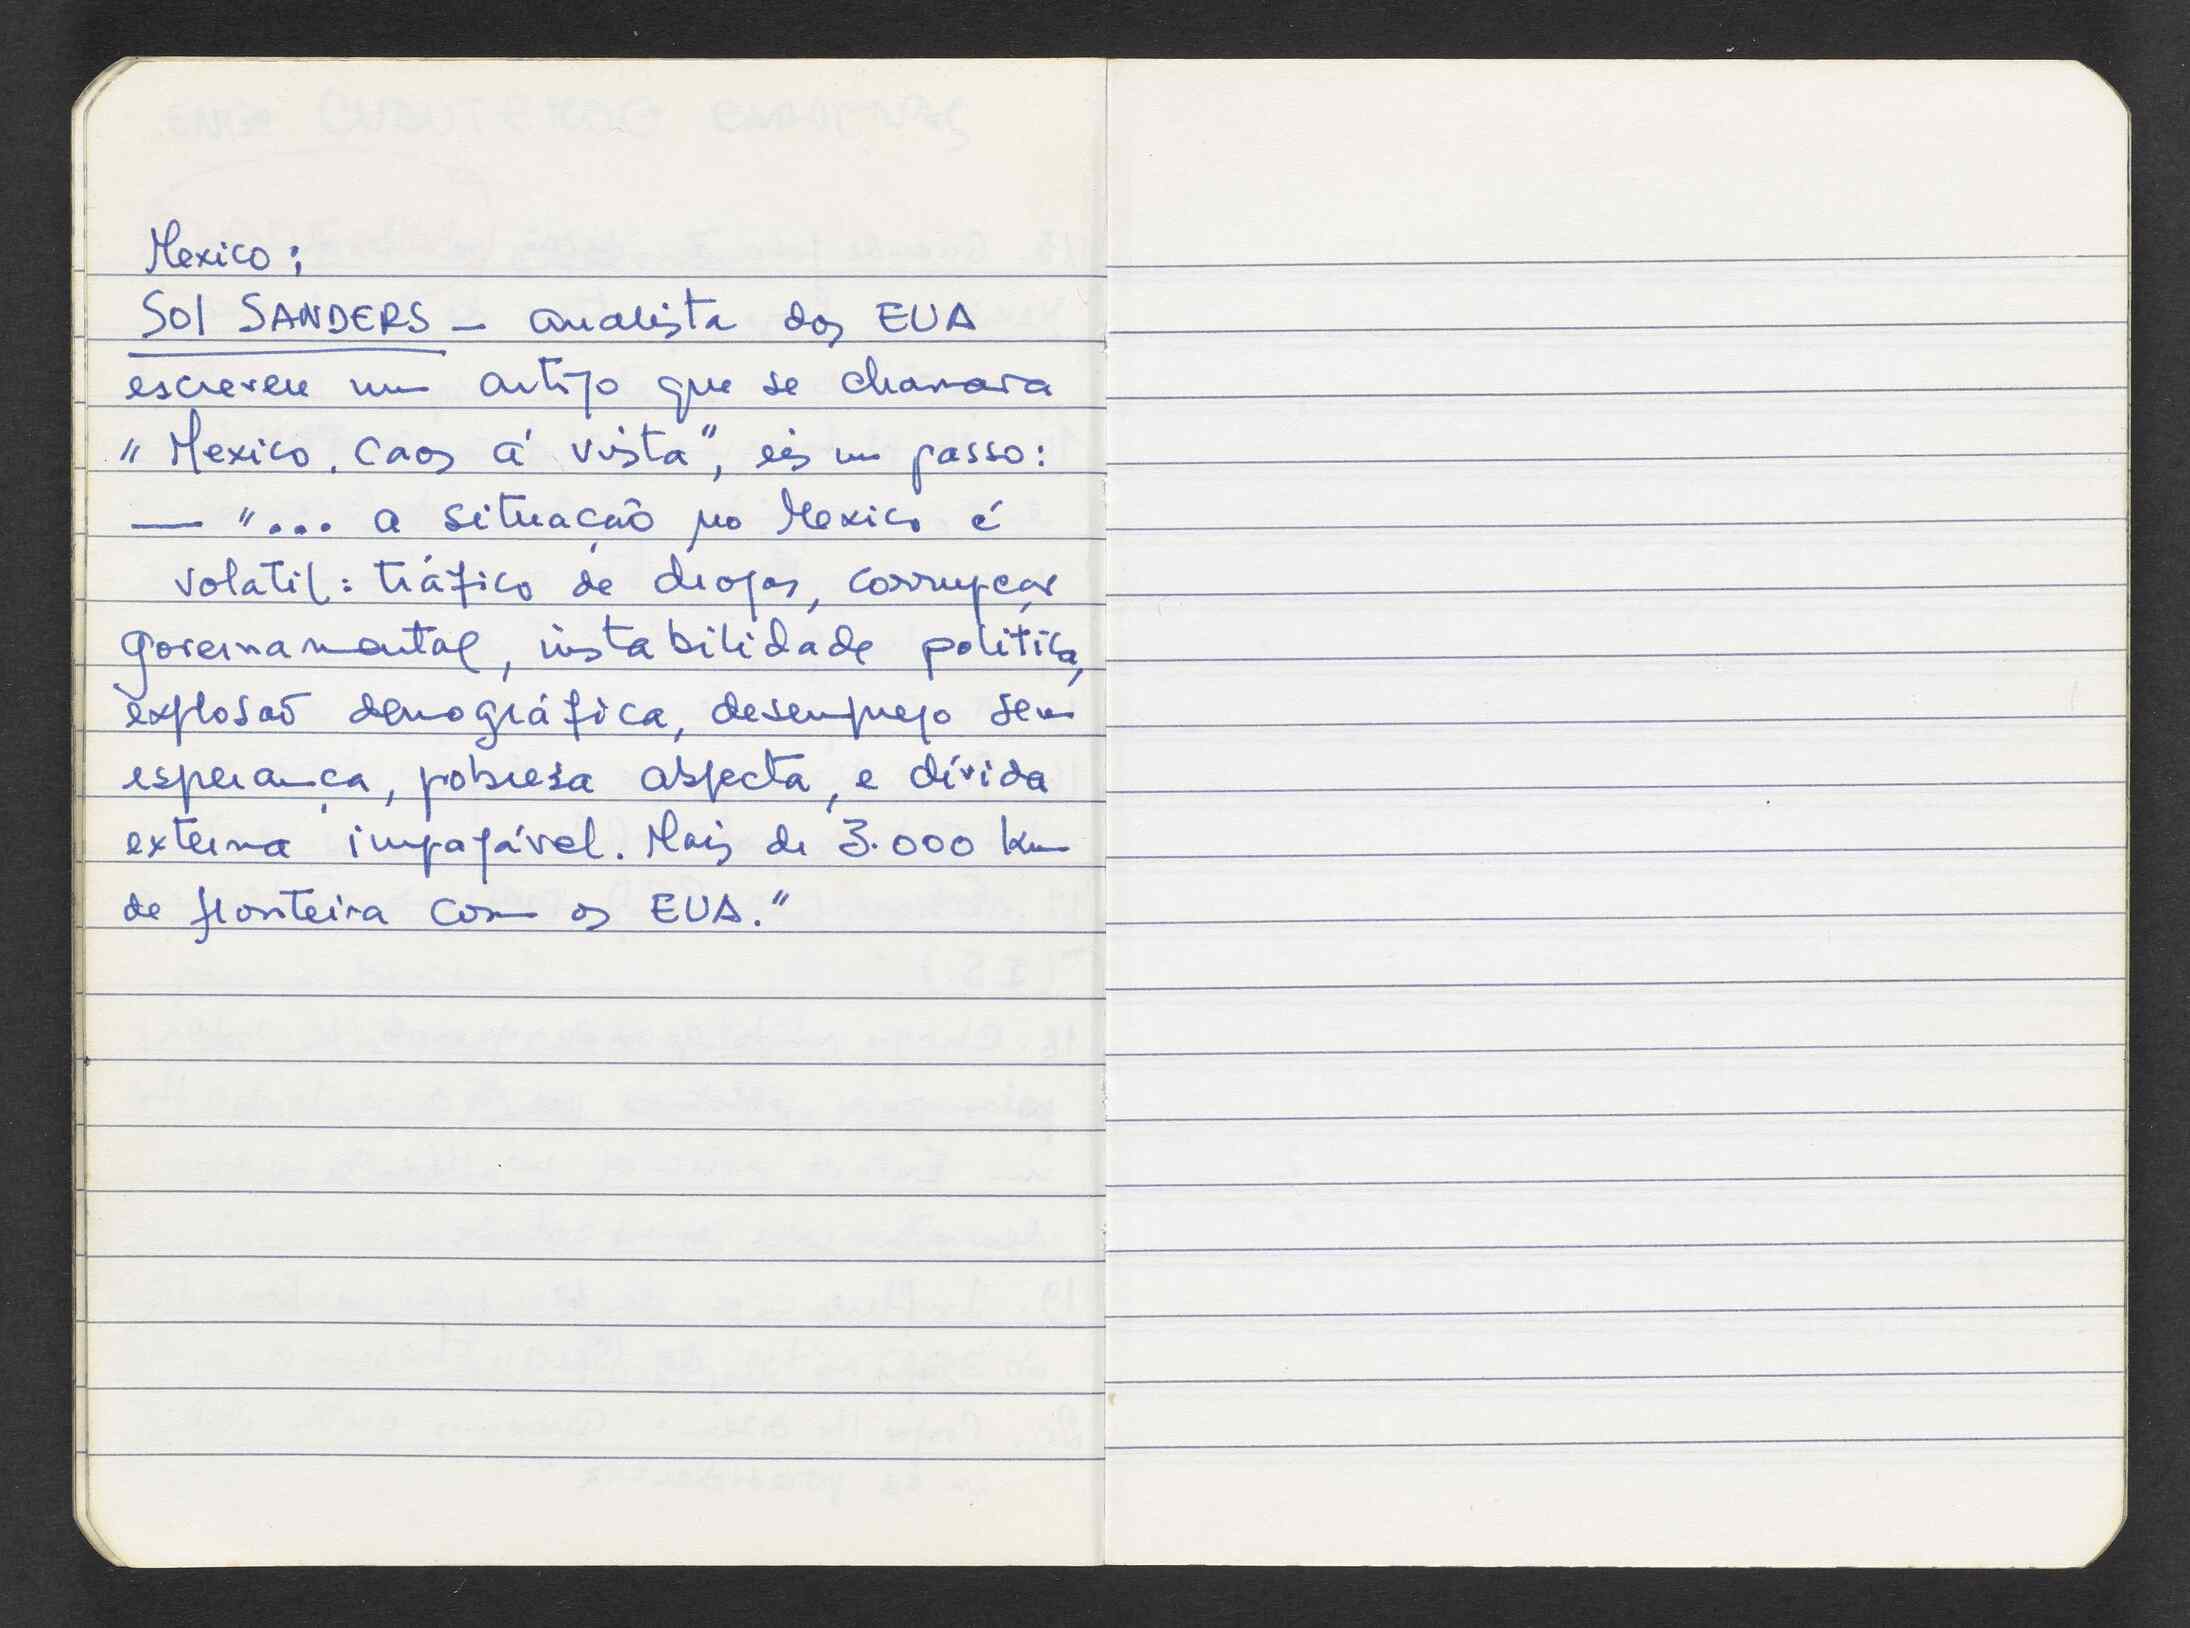 Mexico:
Sol SANDERS - analista dos EUA
escreveu um artigo que se chamava
"Mexico. Caos á vista", eis um passo:
— "... a situação no Mexico é
volatil: tráfico de drogas, corrupção
governamental, instabilidade política,
explosaõ demográfica, desemprego sem
esperança, pobresa abjecta, e dívida
externa impagável. Mais de 3.000 km
de fronteira com os EUA."